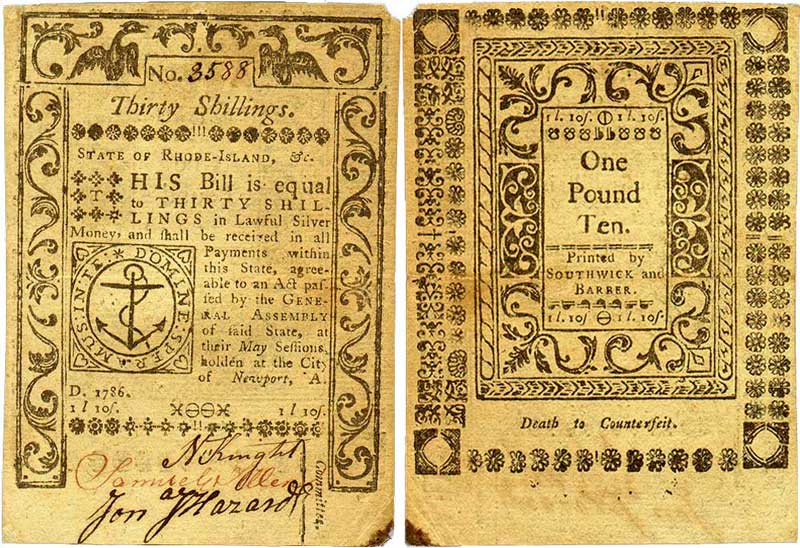 No. 3588
Thirty Shillings.
STATE OF RHODE-ISLAND, &c.
THIS Bill is equal
to THIRTY SHIL-
LINGS in Lawful Silver
Money, and ſhall be received in all
Payments within
this State, agree-
able to an Act paſ-
ſed by the GENE-
RAL ASSEMBLY
of ſaid State, at
their May Seſſions,
holden at the City
of Newport, A.
D. 1786.
IN TE: DOMINE: SPERAMUS:
1 l 10ſ. 1 l 10ſ.
N Knight
Samuel Allen
Jon a J Hazard
Committee.
1 l. 10ſ 1 l. 10ſ
One
Pound
Ten.
Printed by
SOUTHWICK and
BARBER.
1 l. 10ſ 1 l. 10ſ
Death to Counterfeit.